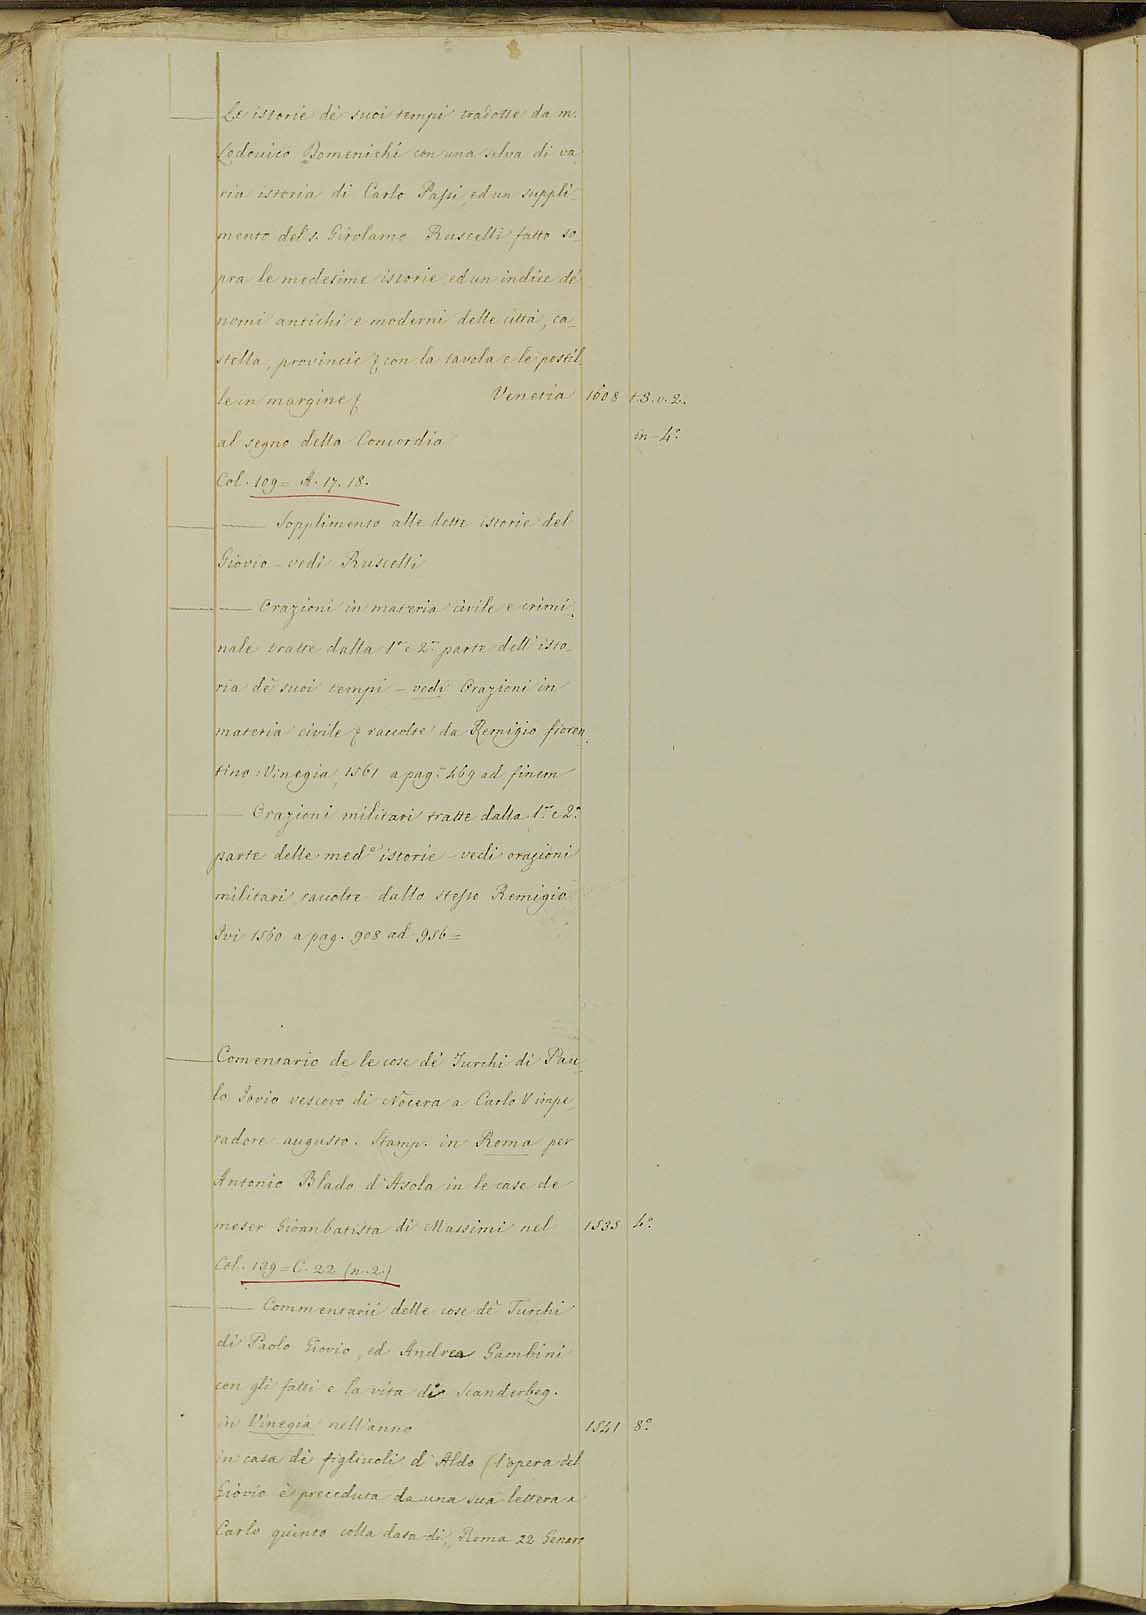 Le istorie de' suoi tempi tradotte da m.
Lodovico Domenichi con una selva di va_
ria istoria di Carlo Passi, ed un suppli_
mento del s. Girolamo Ruscelli fatto so_
pra le medesime istorie, ed un indice de'
nomi antichi e moderni delle città, ca_
stella, provincie & con la tavola e le postil_
le in margine & Venetia 1608 t. 3. v. 2.
al segno della Concordia in 4°
Col. 109 = A. 17. 18.
— Sopplimento alle dette istorie del
Giovio - vedi Ruscelli
— Orazioni in materia civile e crimi_
nale tratte dalla 1a e 2a parte dell'isto_
ria de' suoi tempi - vedi Orazioni in
materia civile & raccolte da Remigio fioren_
tino: Vinegia 1561 a pag. 469 ad finem
— Orazioni militari tratte dalla 1a e 2a
parte delle med.e istorie - vedi orazioni
militari raccolte dallo stesso Remigio
Ivi 1560 a pag. 908 ad 956 =
Comentario de le cose de' Turchi di Pau_
lo Iovio vescovo di Nocera a Carlo V impe_
radore augusto. Stamp. in Roma per
Antonio Blado d'Asola in le case de
meser Gioanbatista di Massimi nel 1535 4°
Col. 139 = C. 22 (n. 2.)
— Commentarii delle cose de' Turchi
di Paolo Giovio, ed Andrea Gambini
con gli fatti e la vita di Scanderbeg.
in Vinegia nell'anno 1541 8°
in casa de' figliuoli d'Aldo (l'opera del
Giovio è preceduta da una sua lettera a
Carlo quinto colla data di „ Roma 22 Genaro